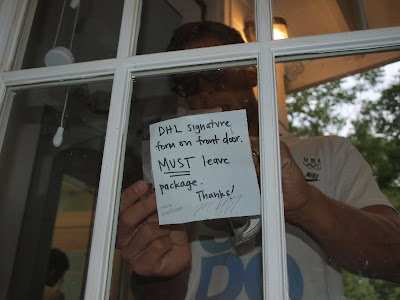 DHL signature
form on front door.
MUST leave
package.
Thanks!
DO